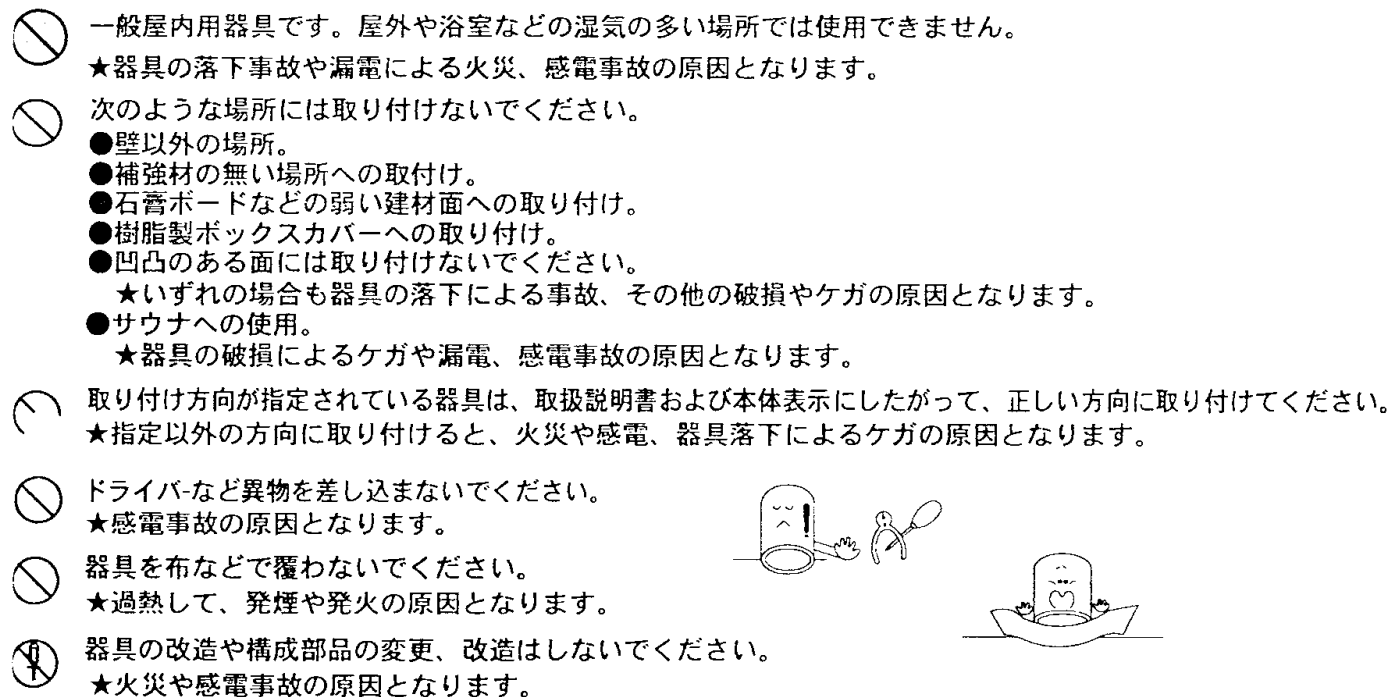 一般屋内用器具です。屋外や浴室などの湿気の多い場所では使用できません。
★器具の落下事故や漏電による火災、感電事故の原因となります。
次のような場所には取り付けないでください。
●壁以外の場所。
●補強材の無い場所への取付け。
●石膏ボードなどの弱い建材面への取り付け。
●樹脂製ボックスカバーへの取り付け。
●凹凸のある面には取り付けないでください。
★いずれの場合も器具の落下による事故、その他の破損やケガの原因となります。
●サウナへの使用。
★器具の破損によるケガや漏電、感電事故の原因となります。
取り付け方向が指定されている器具は、取扱説明書および本体表示にしたがって、正しい方向に取り付けてください。
★指定以外の方向に取り付けると、火災や感電、器具落下によるケガの原因となります。
ドライバ-など異物を差し込まないでください。
★感電事故の原因となります。
器具を布などで覆わないでください。
★過熱して、発煙や発火の原因となります。
器具の改造や構成部品の変更、改造はしないでください。
★火災や感電事故の原因となります。